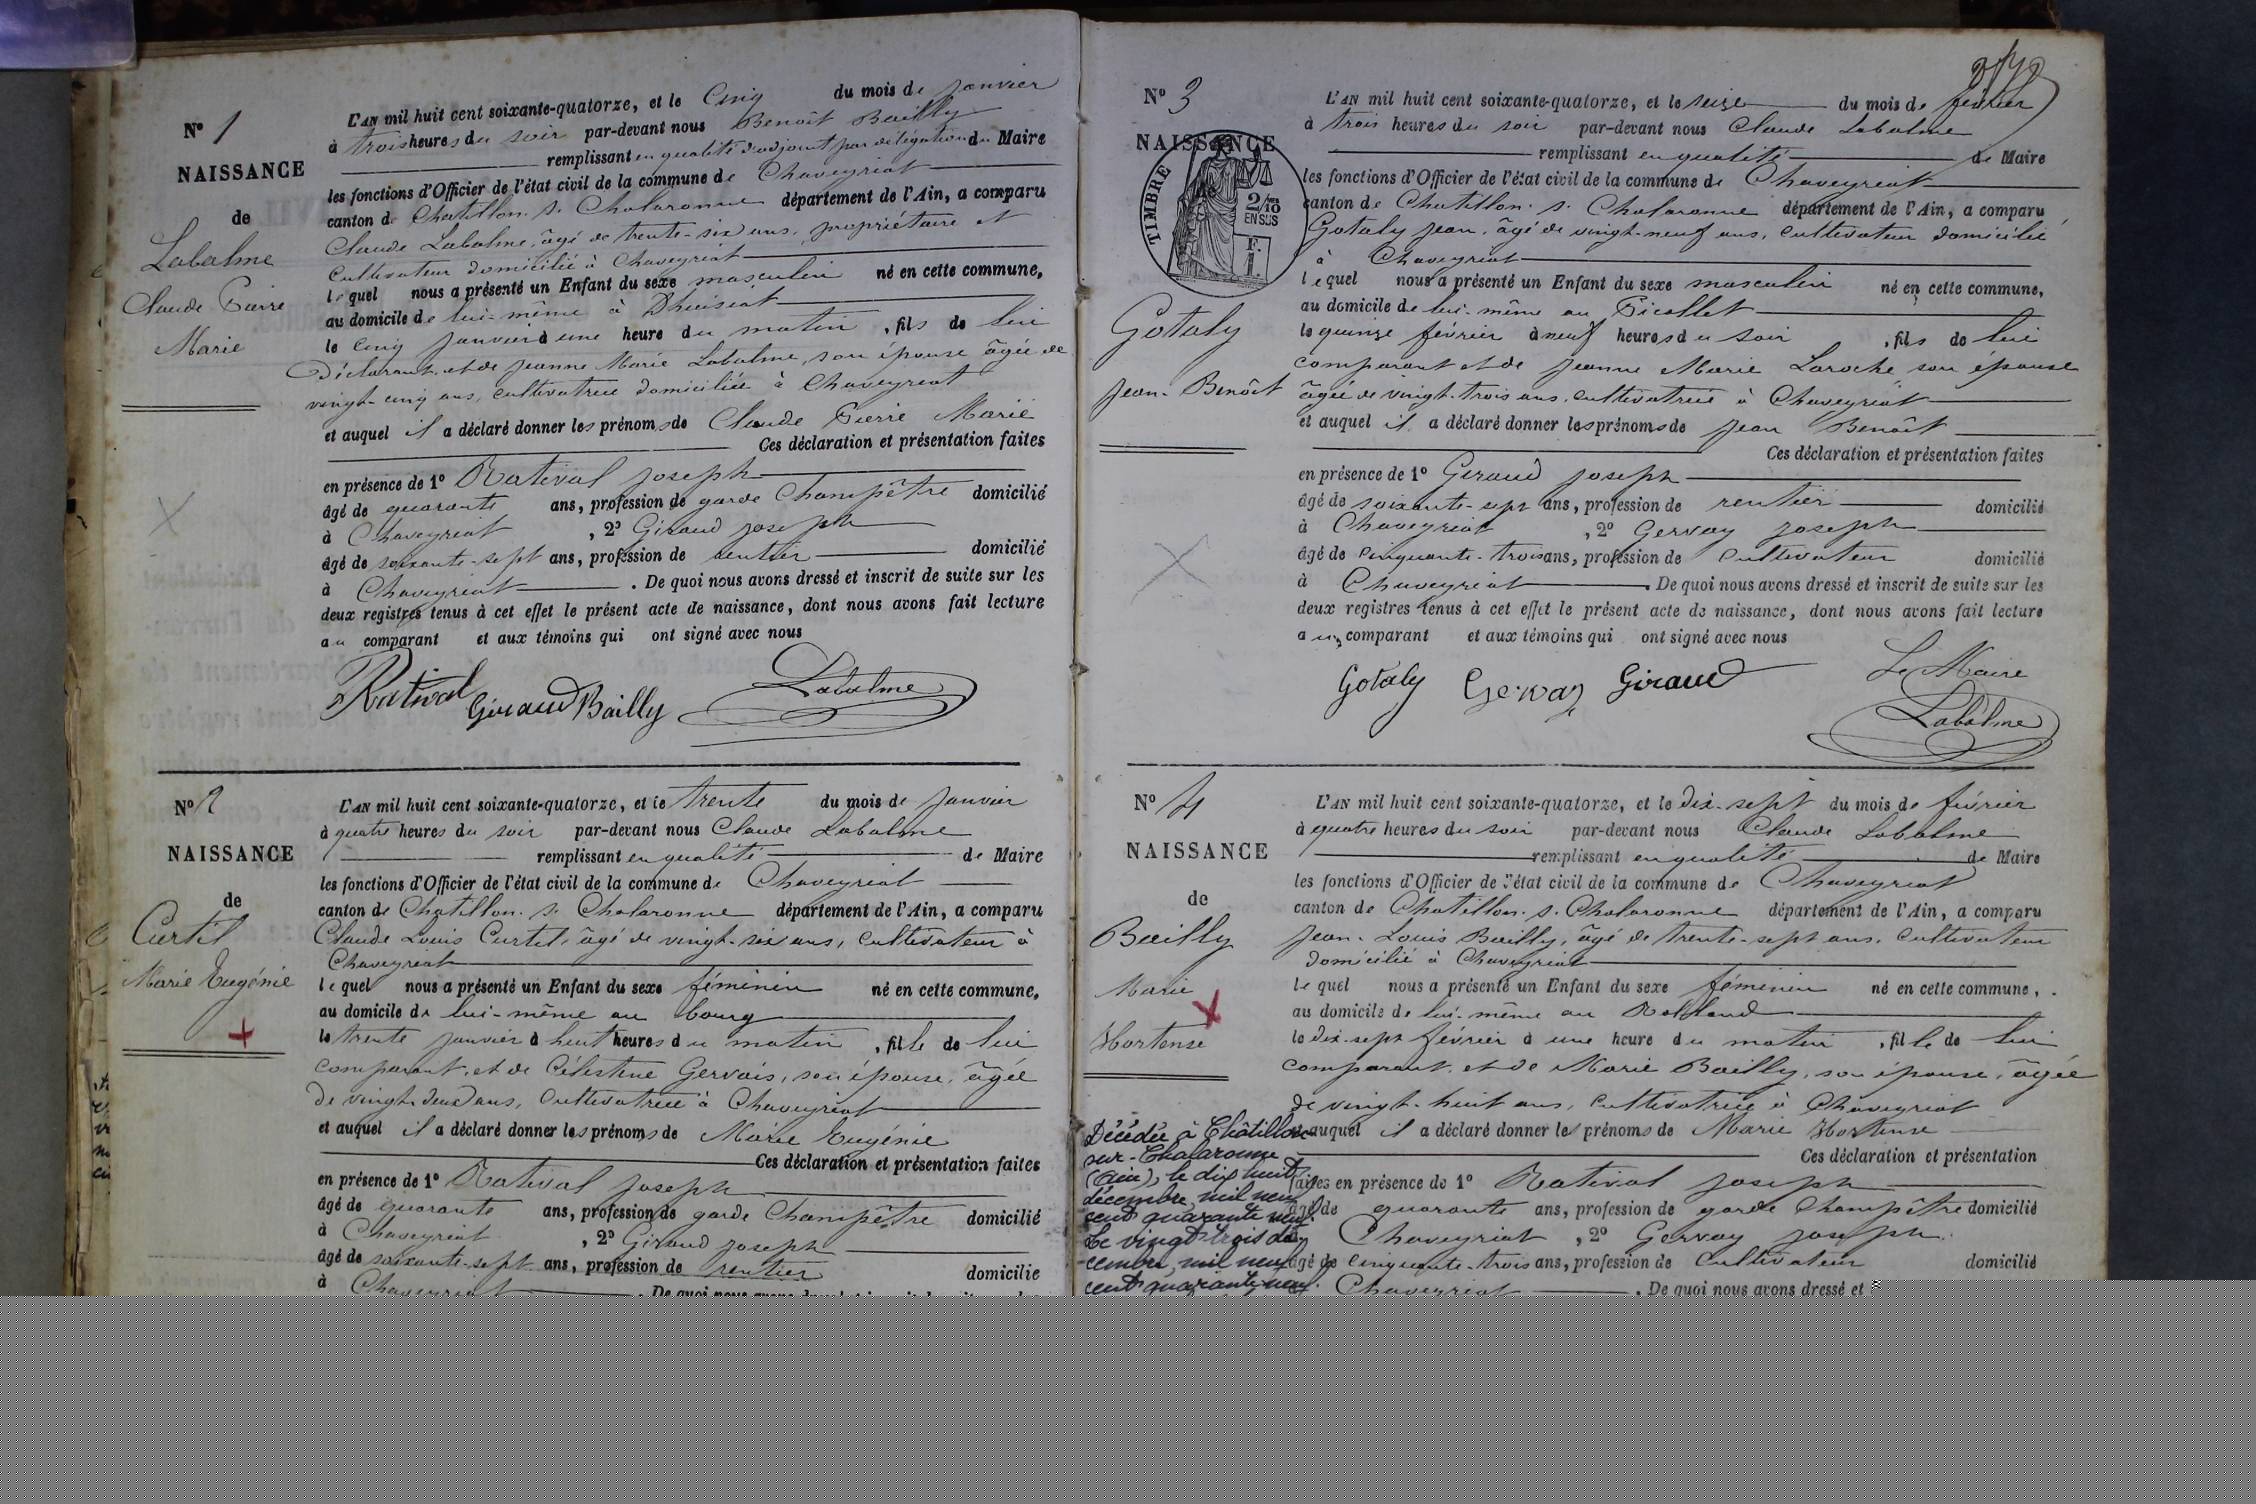 N° 1
NAISSANCE
de
Labalme
Claude Pierre
Marie
L'AN mil huit cent soixante-quatorze, et le Cinq du mois de janvier
à trois heures du soir par-devant nous Benoît Bailly
remplissant en qualité d'adjoint par délégation du Maire
les fonctions d'Officier de l'état civil de la commune de Chaveyriat
canton de Chatillon s. Chalaronne département de l'Ain, a comparu
Claude Labalme, âgé de trente-six ans, propriétaire et
Cultivateur domicilié à Chaveyriat
lequel nous a présenté un Enfant du sexe masculin né en cette commune,
au domicile de lui-même à
le cinq janvier à une heure du matin, fils de lui
Déclarant, et de Jeanne Marie Labalme, son épouse âgée de
vingt-cinq ans, cultivatrice domiciliée à Chaveyriat
et auquel il a déclaré donner les prénoms de Claude Pierre Marie
Ces déclaration et présentation faites
en présence de 1° Ratival Joseph
âgé de quarante ans, profession de garde Champêtre domicilié
à Chaveyriat, 2° Giraud Joseph
âgé de soixante-sept ans, profession de rentier domicilié
à Chaveyriat. De quoi nous avons dressé et inscrit de suite sur les
deux registres tenus à cet effet le présent acte de naissance, dont nous avons fait lecture
au comparant et aux témoins qui ont signé avec nous
Rativat Giraud Bailly Labalme
N° 2
NAISSANCE
de
Curtil
Marie Eugénie
L'AN mil huit cent soixante-quatorze, et le trente du mois de janvier
à quatre heures du soir par-devant nous Claude Labalme
remplissant en qualité de Maire
les fonctions d'Officier de l'état civil de la commune de Chaveyriat
canton de Chatillon s. Chalaronne département de l'Ain, a comparu
Claude Louis Curtil, âgé de vingt-six ans, Cultivateur à
Chaveyriat
lequel nous a présenté un Enfant du sexe féminin né en cette commune,
au domicile de lui-même au bourg
le trente janvier à huit heures du matin, fille de lui
comparant, et de Célestine Gervais, son épouse, âgée
de vingt-deux ans, Cultivatrice à Chaveyriat
et auquel il a déclaré donner les prénoms de Marie Eugénie
Ces déclaration et présentation faites
en présence de 1° Rativat Joseph
âgé de quarante ans, profession de garde Champêtre domicilié
à Chaveyriat, 2° Giraud Joseph
âgé de soixante-sept ans, profession de rentier domicilié
à Chaveyriat. De quoi nous avons
N° 3
NAISSANCE
TIMBRE
2/10
EN SUS
Gotaly
Jean-Benoît
L'AN mil huit cent soixante-quatorze, et le seize du mois de février
à trois heures du soir par-devant nous Claude Labalme
remplissant en qualité de Maire
les fonctions d'Officier de l'état civil de la commune de Chaveyriat
canton de Chatillon s. Chalaronne département de l'Ain, a comparu
Gotaly Jean, âgé de vingt-neuf ans, cultivateur domicilié
à Chaveyriat
lequel nous a présenté un Enfant du sexe masculin né en cette commune,
au domicile de lui-même au Picollet
le quinze février à neuf heures du soir, fils de lui
comparant et de Jeanne Marie Laroche son épouse
âgée de vingt-trois ans, cultivatrice à Chaveyriat
et auquel il a déclaré donner les prénoms de Jean Benoît
Ces déclaration et présentation faites
en présence de 1° Giraud Joseph
âgé de soixante-sept ans, profession de rentier domicilié
à Chaveyriat, 2° Gervay Joseph
âgé de cinquante-trois ans, profession de Cultivateur domicilié
à Chaveyriat. De quoi nous avons dressé et inscrit de suite sur les
deux registres tenus à cet effet le présent acte de naissance, dont nous avons fait lecture
aux comparant et aux témoins qui ont signé avec nous
Gotaly Gervay Giraud Le Maire
Labalme
N° 4
NAISSANCE
de
Bailly
Marie
Hortense
Décédée à Châtillon
sur-Chalaronne
(Ain), le dix huit
décembre mil neuf
cent quarante neuf.
Le vingt trois dé
cembre, mil neuf
cent quarante neuf.
L'AN mil huit cent soixante-quatorze, et le Dix-sept du mois de février
à quatre heures du soir par-devant nous Claude Labalme
remplissant en qualité de Maire
les fonctions d'Officier de l'état civil de la commune de Chaveyriat
canton de Chatillon s. Chalaronne département de l'Ain, a comparu
Jean-Louis Bailly, âgé de trente-sept ans, Cultivateur
domicilié à Chaveyriat
lequel nous a présenté un Enfant du sexe féminin né en cette commune,
au domicile de lui-même au Rolland
le dix-sept février à une heure du matin, fille de lui
comparant, et de Marie Bailly, son épouse, âgée
de vingt-huit ans, Cultivatrice à Chaveyriat
et auquel il a déclaré donner les prénoms de Marie Hortense
Ces déclaration et présentation
faites en présence de 1° Rativat Joseph
âgé de quarante ans, profession de garde Champêtre domicilié
Chaveyriat, 2° Gervay Joseph
âgé de cinquante-trois ans, profession de Cultivateur domicilié
Chaveyriat. De quoi nous avons dressé et